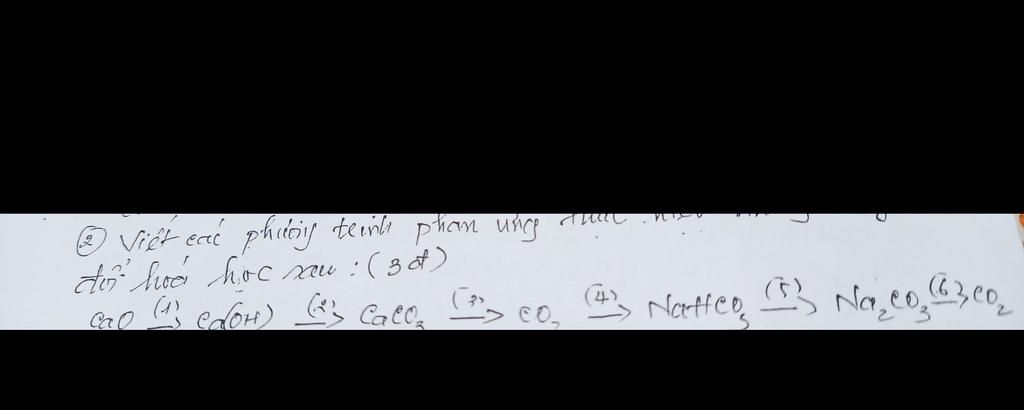 ② Viết các phương trình phản ứng thực hiện
đổi hoá học sau : ( 3 đ )
CaO (1)→ Ca(OH) (2)→ CaCO3 (3)→ CO2 (4)→ NaHCO3 (5)→ Na2CO3 (6)→ CO2